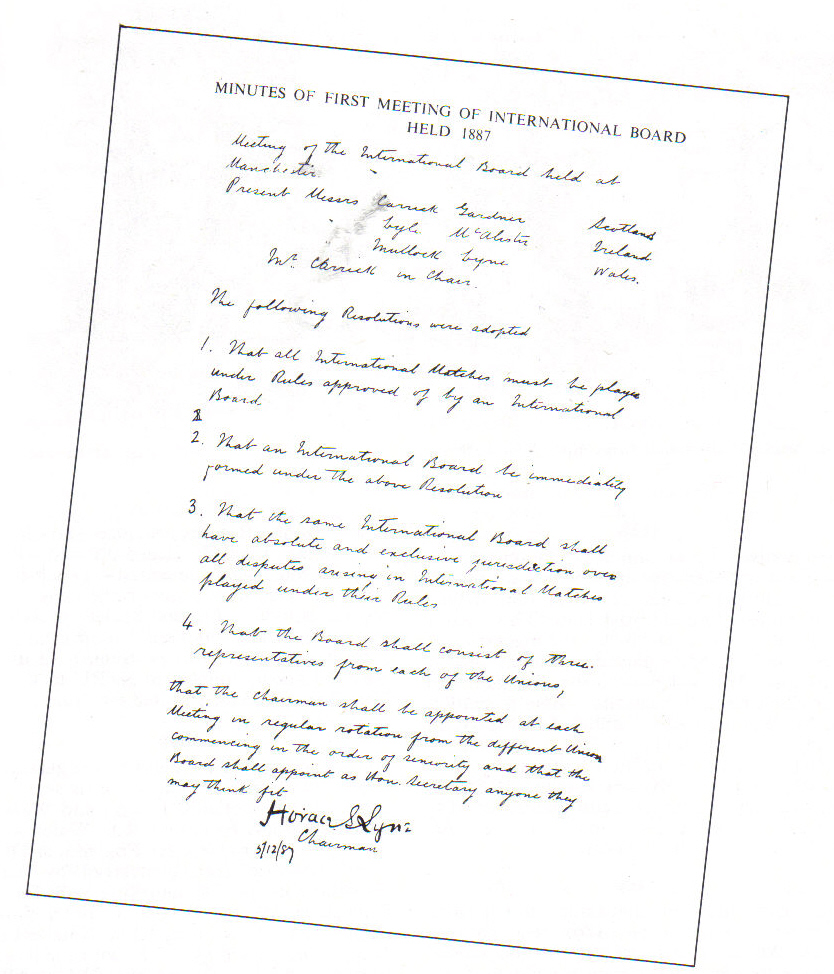 MINUTES OF FIRST MEETING OF INTERNATIONAL BOARD
HELD 1887
Meeting of the International Board held at
Manchester.
Present Messrs Carrick Gardner Scotland
Lyle McAlister Ireland
Mullock Lyne Wales.
Mr. Carrick in Chair.
The following Resolutions were adopted
1. That all International Matches must be played
under Rules approved of by an International
Board
2. That an International Board be immediately
formed under the above Resolution
3. That the same International Board shall
have absolute and exclusive jurisdiction over
all disputes arising in International Matches
played under their Rules
4. That the Board shall consist of three.
representatives from each of the Unions,
that the Chairman shall be appointed at each
Meeting in regular rotation from the different Union
commencing in the order of seniority and that the
Board shall appoint as Hon. Secretary anyone they
may think fit
Horace S Lyne
Chairman
5/12/87